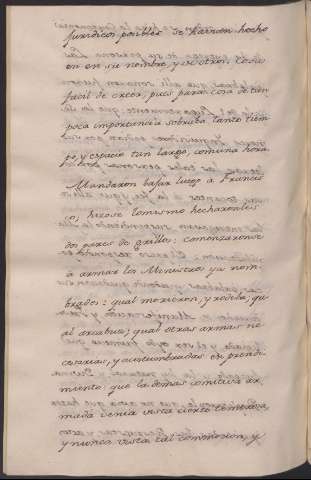 juridicos posibles se harian hecho
en su nombre, y de otros. Cosa
facil de creer, pues para cosa de tan
poca importancia sobraba tanto tiem
po, y espacio tan largo, como una hora
Mandaron bajar luego a Francis
co, hizose lo mismo hecharonles
dos pares de grillos: comenzaronse
à armar los Ministros ya nom
brados: qual morrion, y rodela; qu
al arcabuz; qual otras armas ne
cesarias, y acostumbradas en prendi
miento que la demas comitiva ar
mada venia vista cierto temerosa
y nunca vista tal conmocion, y